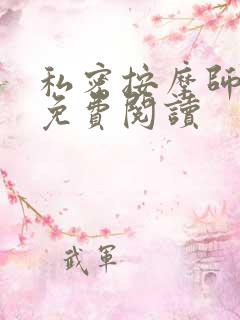 私密按摩師
免費閱讀
武軍